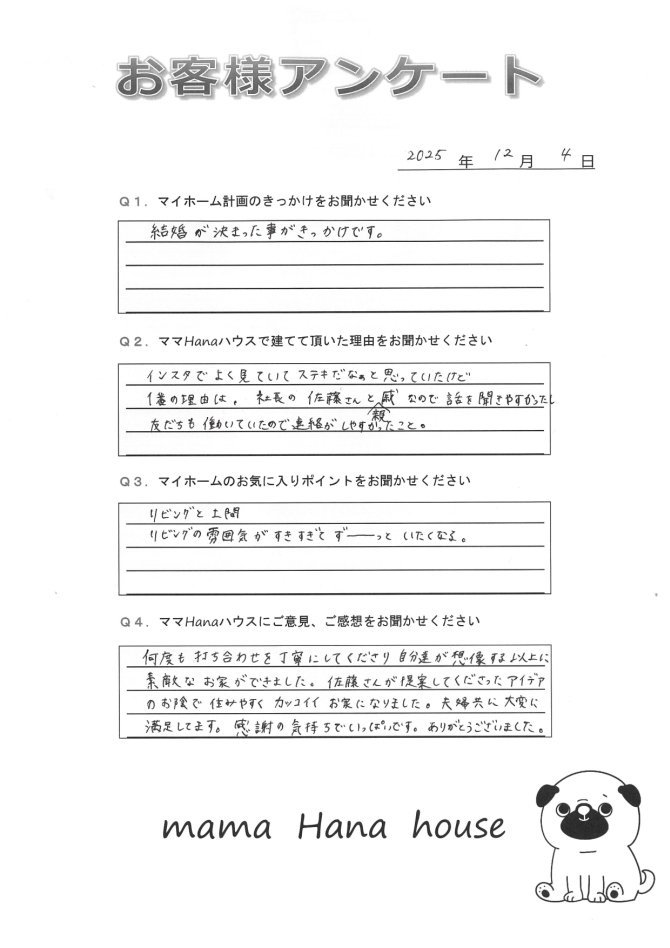 お客様アンケート
2025 年 12 月 4 日
Q1．マイホーム計画のきっかけをお聞かせください
結婚が決まった事がきっかけです。
Q2．ママHanaハウスで建てて頂いた理由をお聞かせください
インスタでよく見ていてステキだなぁと思っていたけど
1番の理由は、社長の佐藤さんと親戚なので話を聞きやすかったし
友だちも働いていたので連絡がしやすかったこと。
Q3．マイホームのお気に入りポイントをお聞かせください
リビングと土間
リビングの雰囲気がすきすぎてずーーっといたくなる。
Q4．ママHanaハウスにご意見、ご感想をお聞かせください
何度も打ち合わせを丁寧にしてくださり自分達が想像する以上に
素敵なお家ができました。佐藤さんが提案してくださったアイデア
のお陰で住みやすくカッコイイお家になりました。夫婦共に大変に
満足してます。感謝の気持ちでいっぱいです。ありがとうございました。
mama Hana house